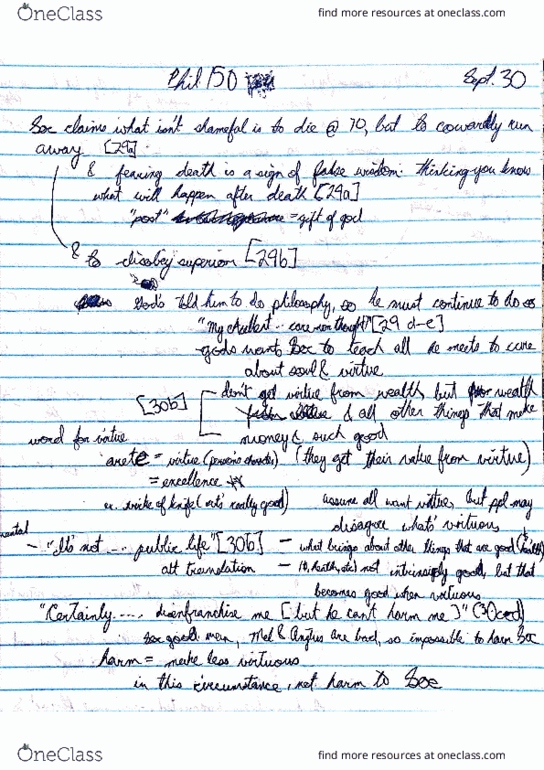 OneClass
find more resources at oneclass.com
Phil 150
Sept. 30
Soc claims what isn't shameful is to die @ 70, but to cowardly run
away [29a]
& fearing death is a sign of false wisdom. thinking you know
what will happen after death [29a]
"post" = gift of god
& to disobey superior [29b]
God's told him to do philosophy, so he must continue to do so
"My excellent... care nor thought" [29 d-e]
gods want Soc to teach all he meets to care
about soul & virtue
[30b]
don't get virtue from wealth, but wealth
& all other things that make
money & such good
word for virtue
arete = virtue (person's character)
(they get their value from virtue)
= excellence
ex. virtue of knife (cuts really good)
assume all want virtue, but ppl may
disagree what's virtuous
- "It's not ... public life" [30b]
- what brings about other things that are good (health)
alt translation
- (, health, etc) not intrinsically good, but that
becomes good when virtuous
"Certainly ..., disenfranchise me [but he can't harm me]" (30cd)
Soc good man, Mel & Anytus are bad, so impossible to harm Soc
harm = make less virtuous
in this circumstance, not harm to Soc
OneClass
find more resources at oneclass.com